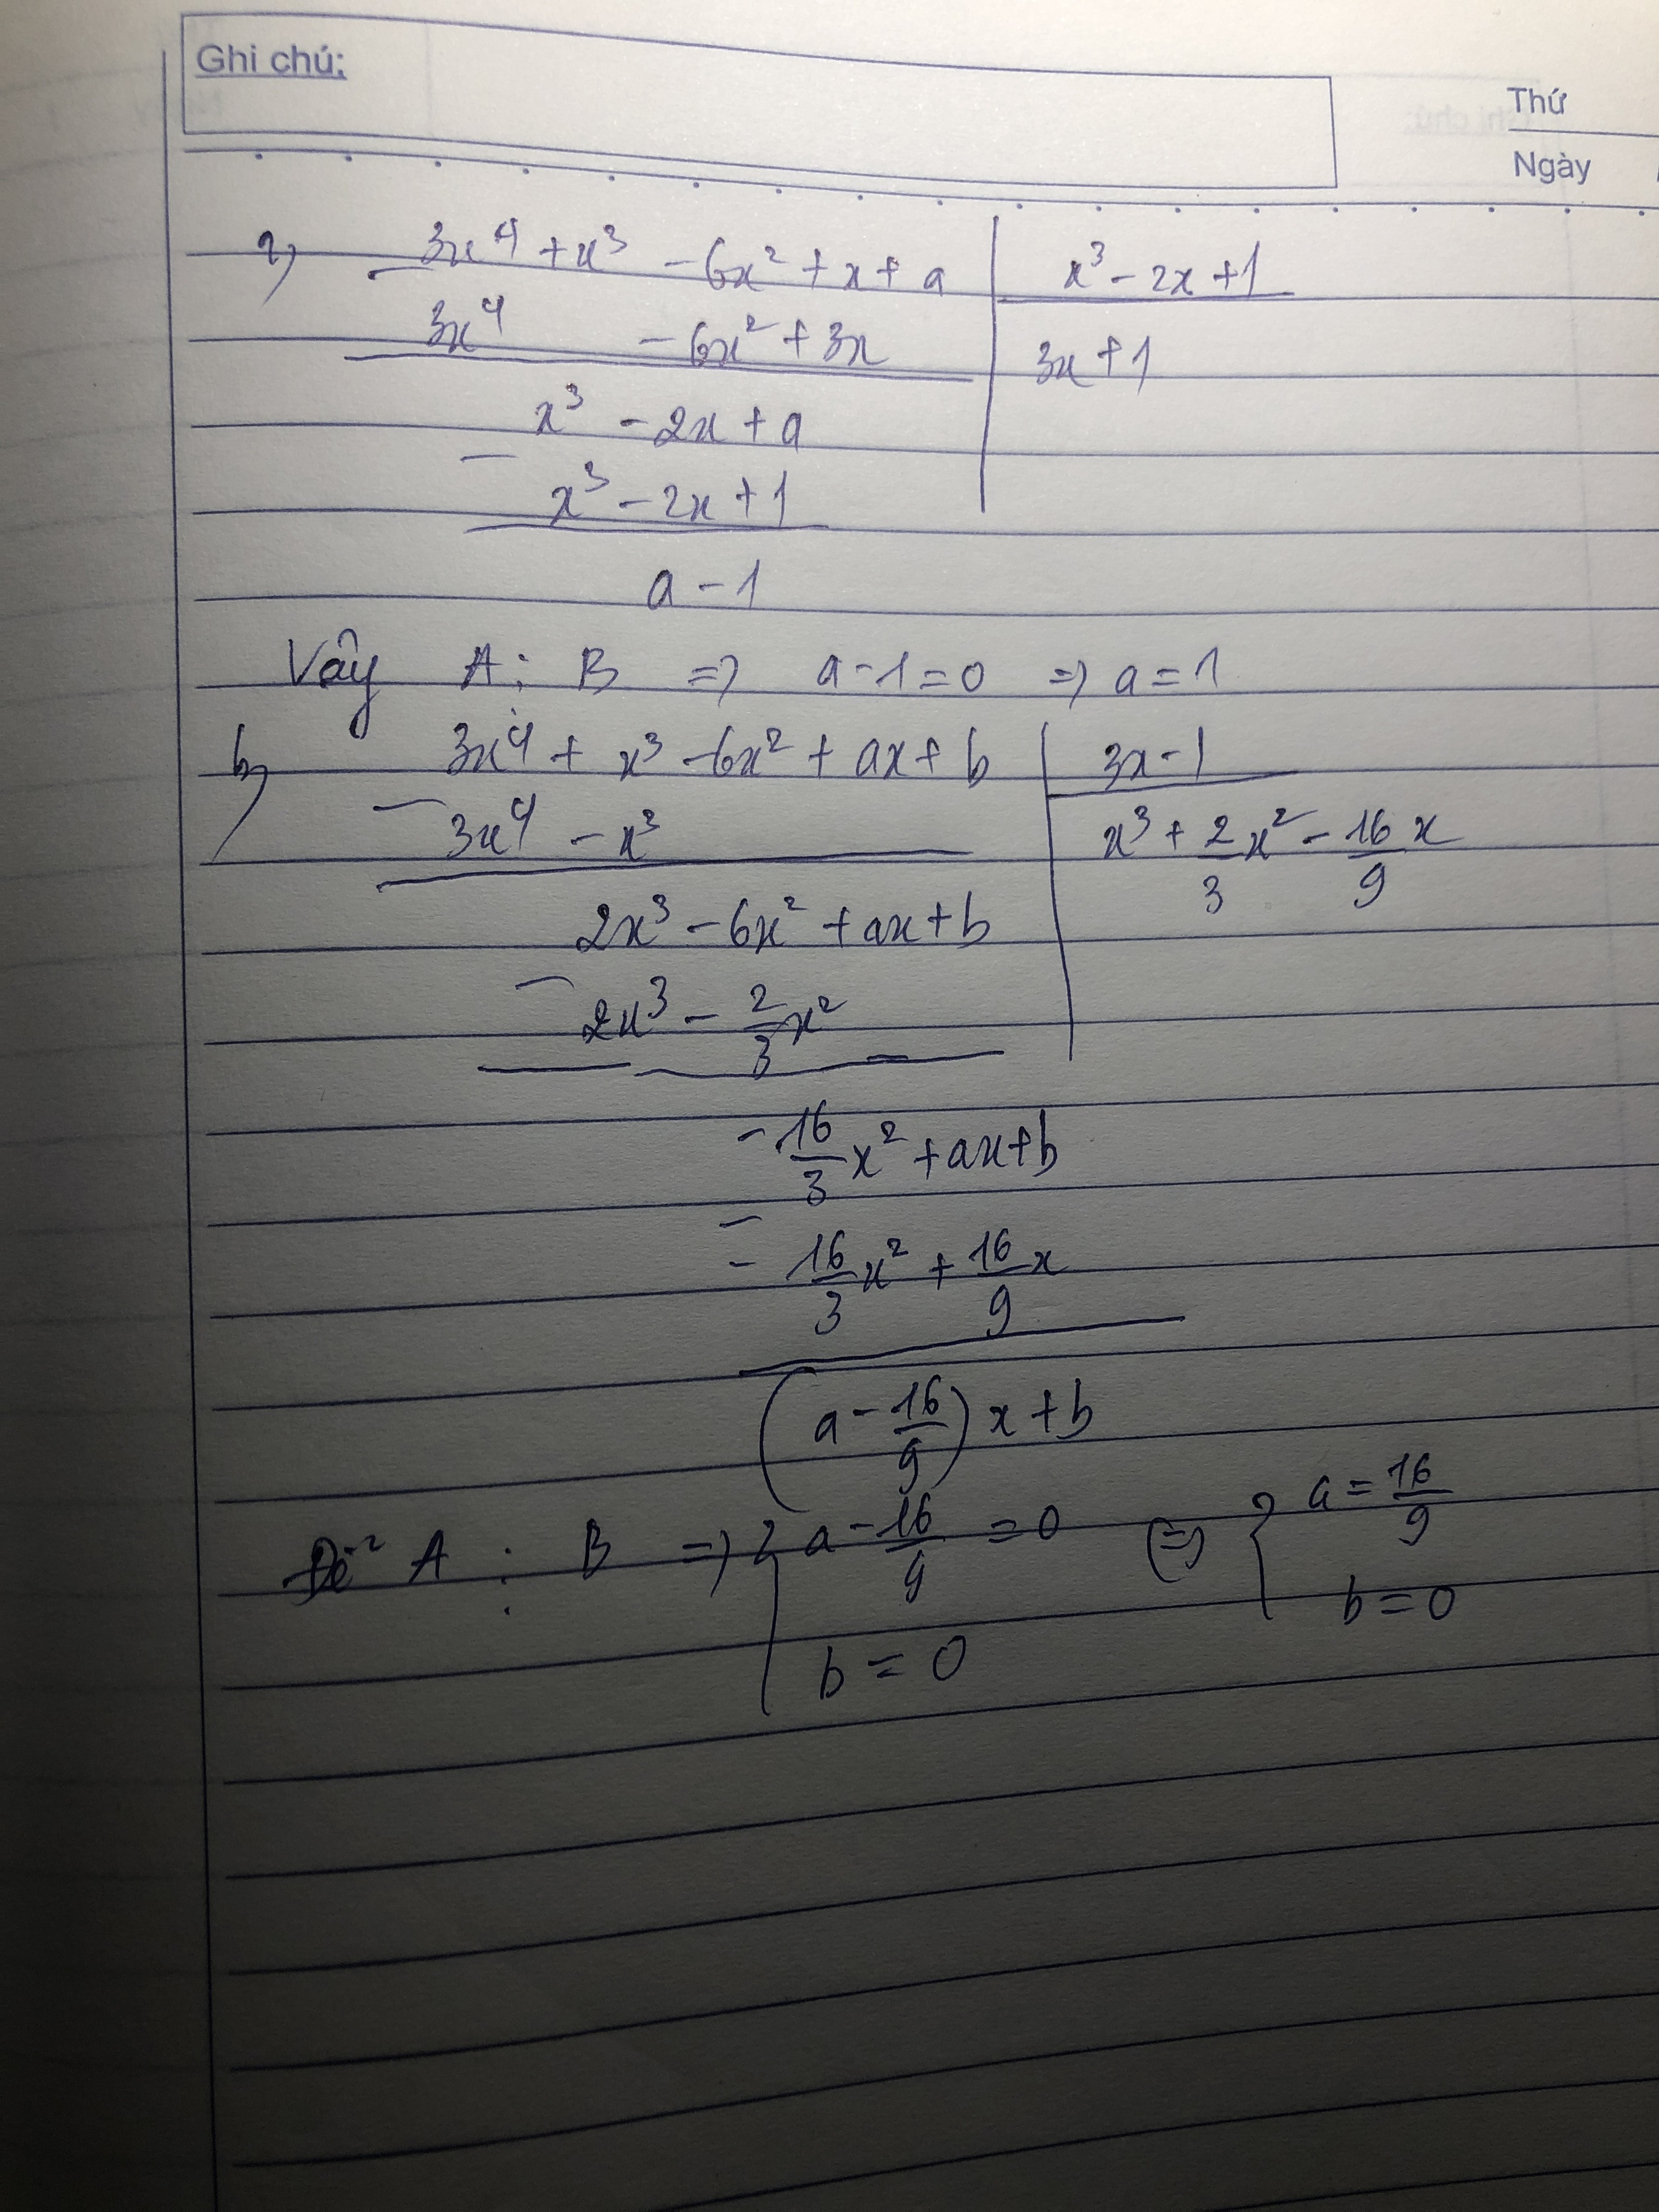 Ghi chú:
Thứ
Ngày
a) 3x⁴ + x³ - 6x² + x + a | x³ - 2x + 1
- 3x⁴ - 6x² + 3x | 3x + 1
x³ - 2x + a
- x³ - 2x + 1
a - 1
Vậy A ⋮ B => a - 1 = 0 => a = 1
b) 3x⁴ + x³ - 6x² + ax + b | 3x - 1
- 3x⁴ - x³ | x³ + 2/3 x² - 16/9 x
2x³ - 6x² + ax + b
- 2x³ - 2/3 x²
- 16/3 x² + ax + b
- - 16/3 x² + 16/9 x
(a - 16/9) x + b
Để A ⋮ B => { a - 16/9 = 0 (=) { a = 16/9
b = 0 b = 0